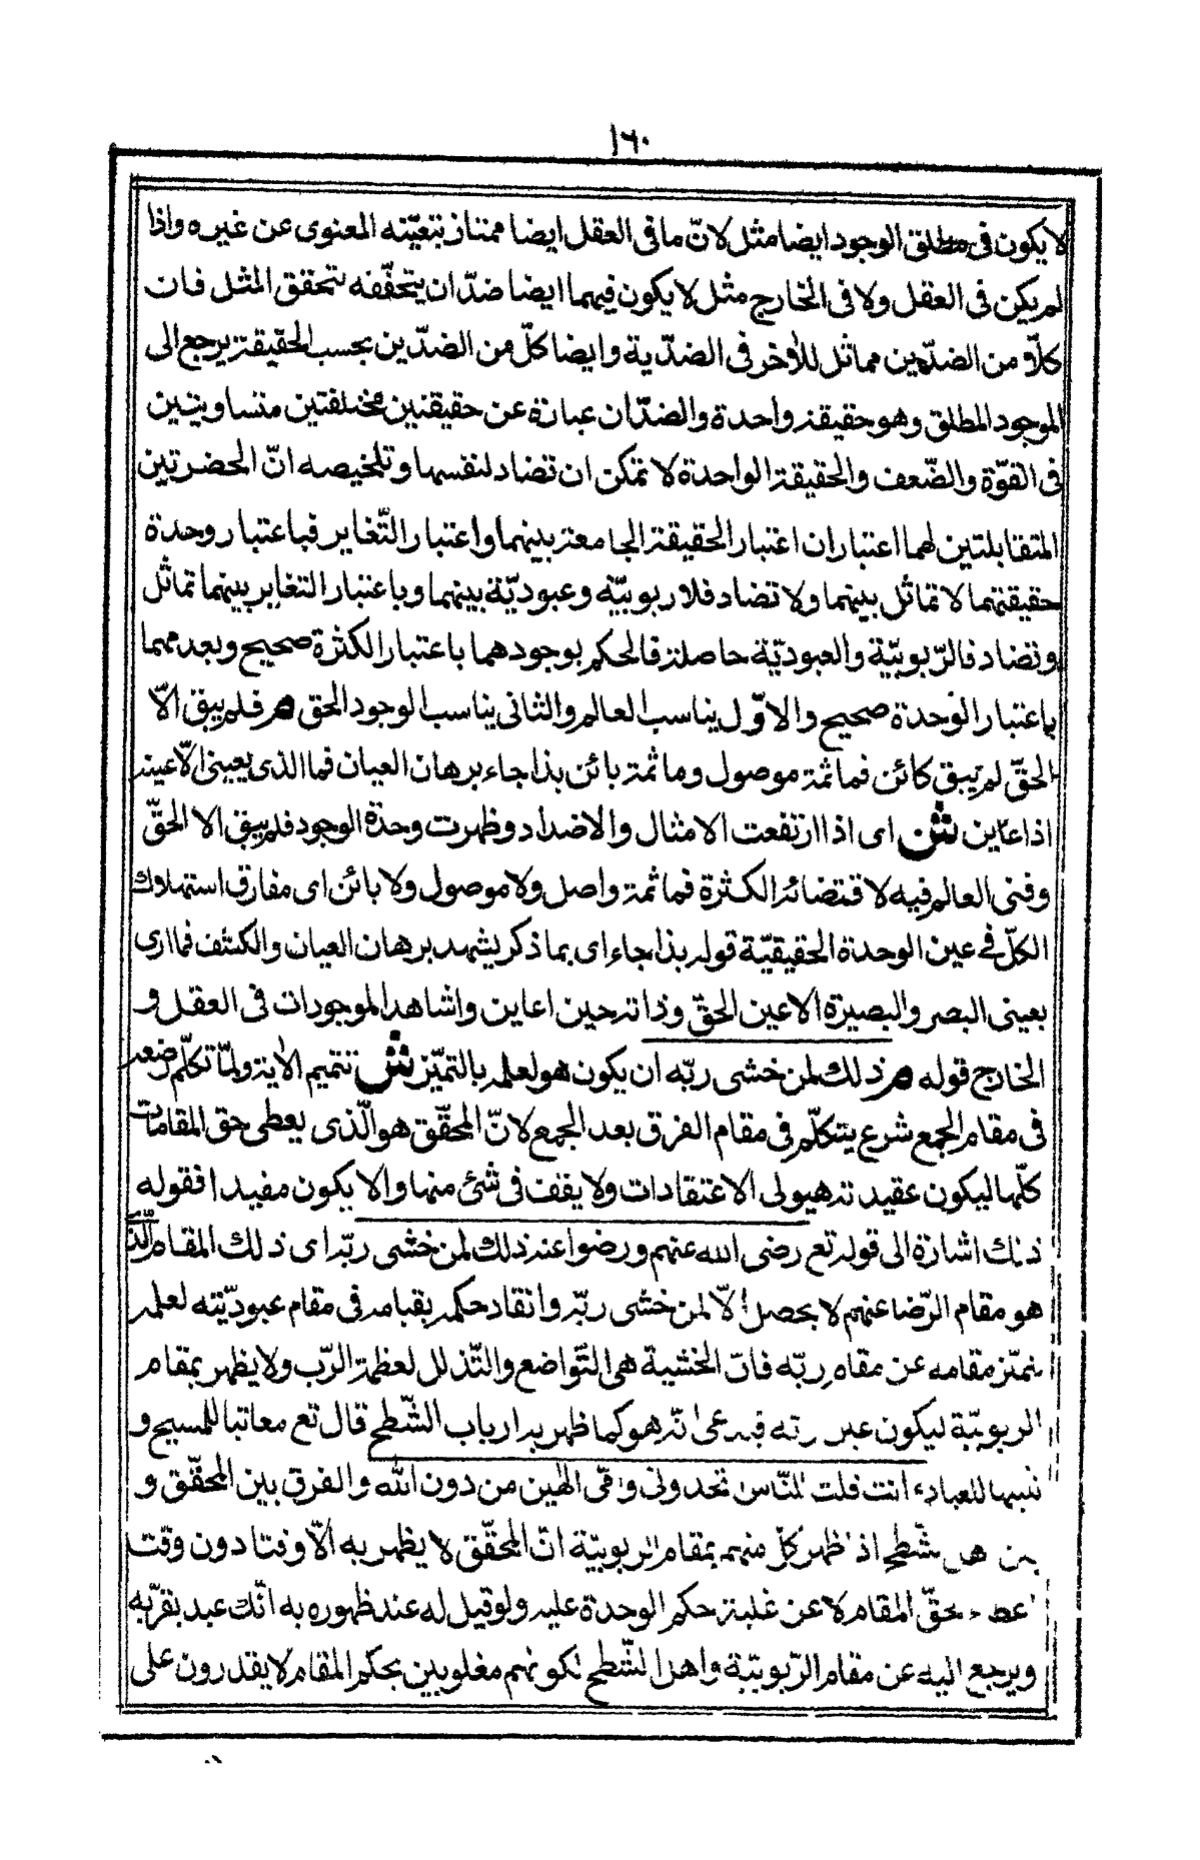 ١٦٠
لا يكون فى مطلق الوجود ايضا مثل لانّ ما فى العقل ايضا ممتاز بتعيّنه المعنوى عن غيره واذا
لم يكن فى العقل ولا فى الخارج مثل لا يكون فيهما ايضا ضدّان يتحقّقه بتحقق المثل فان
كلّا من الضدّين مماثل للآخر فى الضدّية وايضا كلّ من الضدّين بحسب الحقيقة يرجع الى
الموجود المطلق وهو حقيقة واحدة والضدّان عبارة عن حقيقتين مختلفتين متساويتين
فى القوّة والضّعف والحقيقة الواحدة لا تمكن ان تضاد لنفسها وتلخيصه انّ الحضرتين
المتقابلتين لهما اعتباران اعتبار الحقيقة الجامعة بينهما واعتبار التّغاير فباعتبار وحدة
حقيقتهما لا تماثل بينهما ولا تضاد فلا ربوبيّة وعبوديّة بينهما وباعتبار التغاير بينهما تماثل
وتضاد فالرّبوبيّة والعبوديّة حاصلة فالحكم بوجودهما باعتبار الكثرة صحيح وبعدمهما
باعتبار الوحدة صحيح والاوّل يناسب العالم والثانى يناسب الوجود الحق م فلم يبق الّا
الحقّ لم يبق كائن فما ثمة موصول وما ثمة بائن بذا جاء برهان العيان فما الذى بعينى الّا عينه
اذا عاين ش اى اذا ارتفعت الامثال والاضداد وظهرت وحدة الوجود فلم يبق الا الحقّ
وفنى العالم فيه لاقتضائه الكثرة فما ثمة واصل ولا موصول ولا بائن اى مفارق استهلاك
الكلّ فى عين الوحدة الحقيقيّة قوله بذا جاء اى بما ذكر يشهد برهان العيان والكشف فما ارى
بعينى البصر والبصيرة الا عين الحقّ وذاته حين اعاين واشاهد الموجودات فى العقل و
الخارج قوله م ذلك لمن خشى ربّه ان يكون هو لعلمه بالتميّز ش تتميم الآية ولمّا تكلّم رضعه
فى مقام الجمع شرع يتكلّم فى مقام الفرق بعد الجمع لانّ المحقّق هو الّذى يعطى حق المقامات
كلّها ليكون عقيدته هيولى الاعتقادات ولا يقف فى شئ منها والا يكون مقيدا فقوله
ذلك اشارة الى قوله تع رضى الله عنهم ورضوا عنه ذلك لمن خشى ربّه اى ذلك المقام الّذى
هو مقام الرّضا عنهم لا يحصل الّا لمن خشى ربّه وانقاد حكمه بقيامه فى مقام عبوديّته لعلمه
بتميّز مقامه عن مقام ربّه فانّ الخشية هى التّواضع والتّذلل لعظمة الرّب ولا يظهر بمقام
الربوبيّة ليكون عبد ربّه فيدعى انّه هو كما ظهر به ارباب الشّطح قال تع معاتبا للمسيح و
تنبيها للعباد ءانت قلت للنّاس اتّخذونى وامّى الٰهين من دون الله والفرق بين المحقّق و
بين اهل الشّطح اذا ظهر كلّ منهم بمقام الربوبيّة انّ المحقّق لا يظهر به الّا وقتا دون وقت
اعطاء بحقّ المقام لا عن غلبة حكم الوحدة عليه ولو قيل له عند ظهوره به انّك عبد يقرّ به
ويرجع اليه عن مقام الرّبوبيّة واهل الشّطح لكونهم مغلوبين بحكم المقام لا يقدرون على